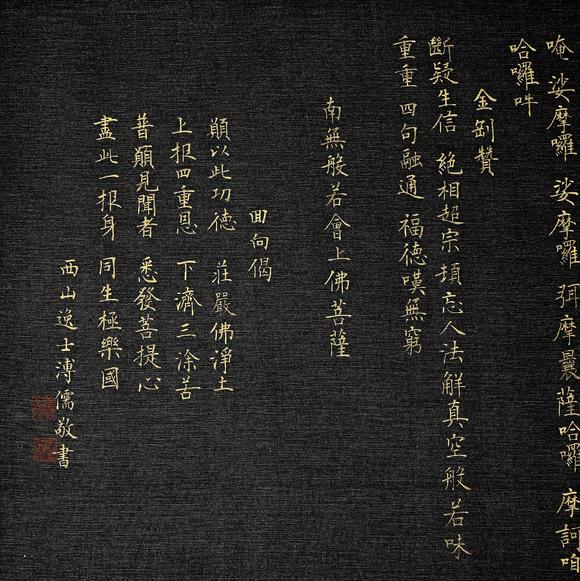 唵 娑摩囉 娑摩囉 弭摩曩薩哈囉 摩訶咱
哈囉吽
金剛贊
斷疑生信 絶相超宗 頓忘人法解真空般若味
重重 四句融通 福德嘆無窮
南無般若會上佛菩薩
回向偈
願以此功德 莊嚴佛淨土
上报四重恩 下濟三涂苦
普願見聞者 悉發菩提心
盡此一报身 同生極樂國
西山逸士溥儒敬書